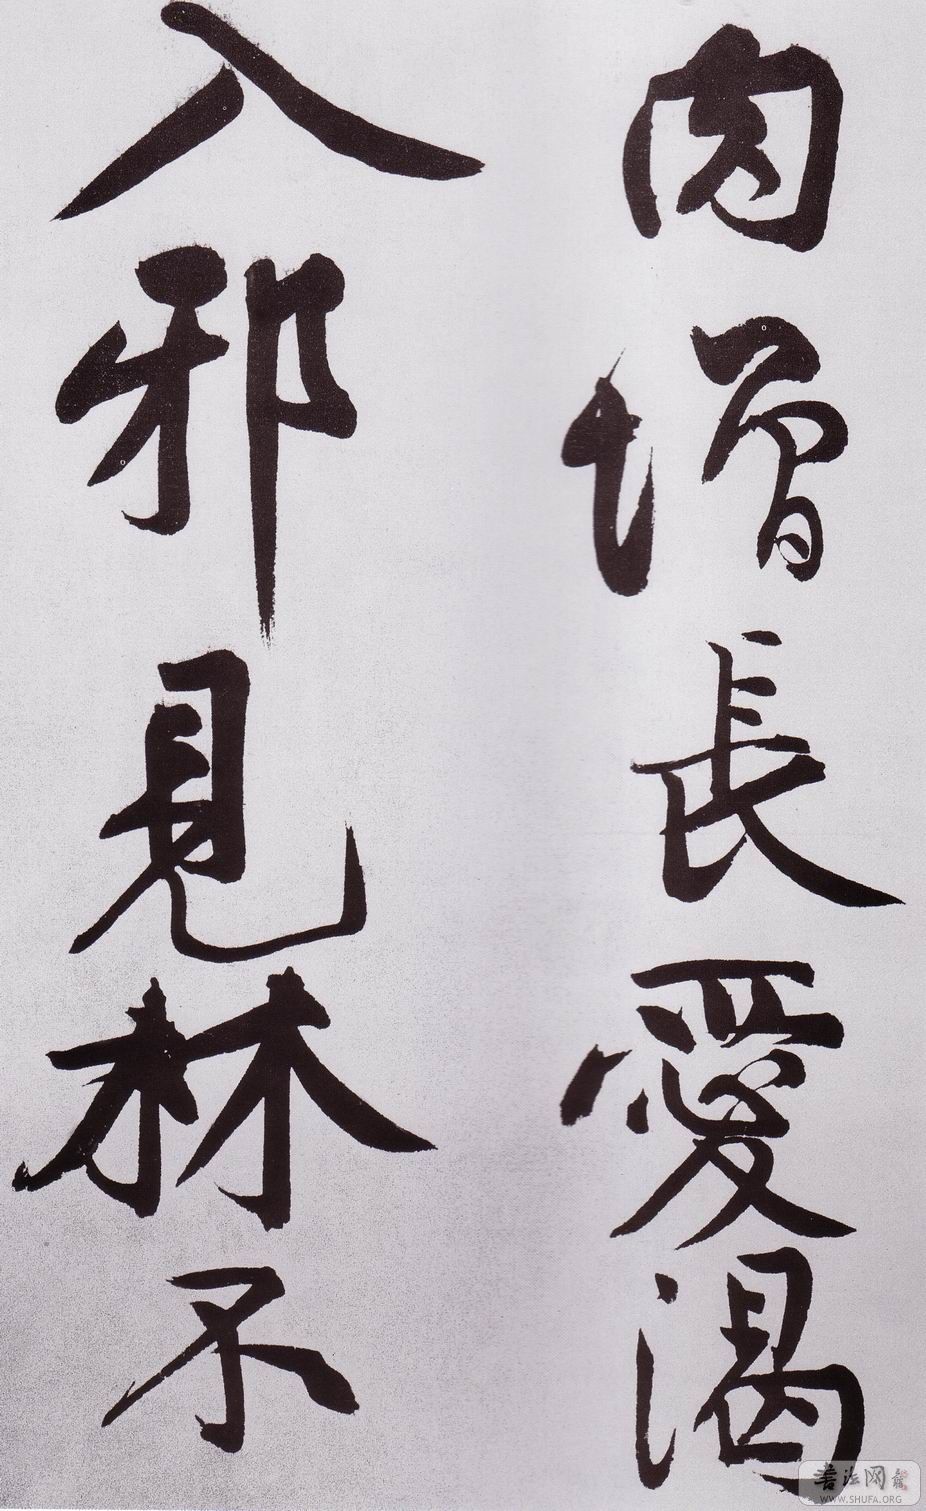 肉增長愛渴
入邪見林不
書法网
WWW.SHUFA.ORG